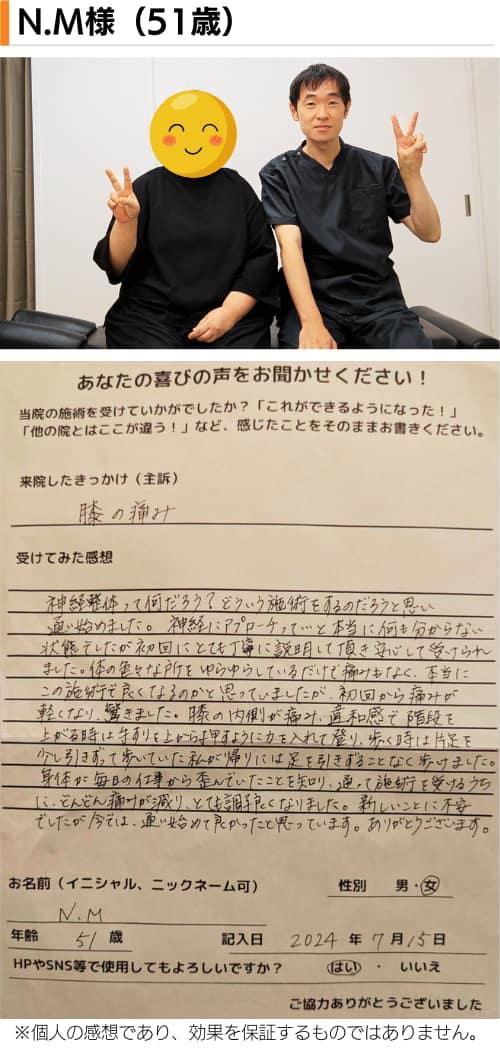 N.M様（51歳）
あなたの喜びの声をお聞かせください！
当院の施術を受けていかがでしたか？「これができるようになった！」
「他の院とはここが違う！」など、感じたことをそのままお書きください。
来院したきっかけ（主訴）
膝の痛み
受けてみた感想
神経整体って何だろう？どういう施術をするのだろうと思い
通い始めました。神経にアプローチって…と本当に何も分からない
状態でしたが初回にとても丁寧に説明して頂き安心して受けられ
ました。体の色々な所をゆらゆらしているだけで痛みもなく、本当に
この施術で良くなるのかと思っていましたが、初回から痛みが
軽くなり、驚きました。膝の内側が痛み、違和感で階段を
上がる時は手すりを上から押すように力を入れて登り、歩く時は片足を
少し引きずって歩いていた私が帰りには足を引きずることなく歩けました。
身体が毎日の仕事から歪んでいたことを知り、通って施術を受けるうち
に、どんどん痛みが減り、とても調子良くなりました。新しいことに不安
でしたが今では、通い始めて良かったと思っています。ありがとうございます。
お名前（イニシャル、ニックネーム可）　性別　男・女
N.M
年齢　51 歳　記入日　2024 年 7 月 15 日
HPやSNS等で使用してもよろしいですか？　はい ・ いいえ
ご協力ありがとうございました
※個人の感想であり、効果を保証するものではありません。